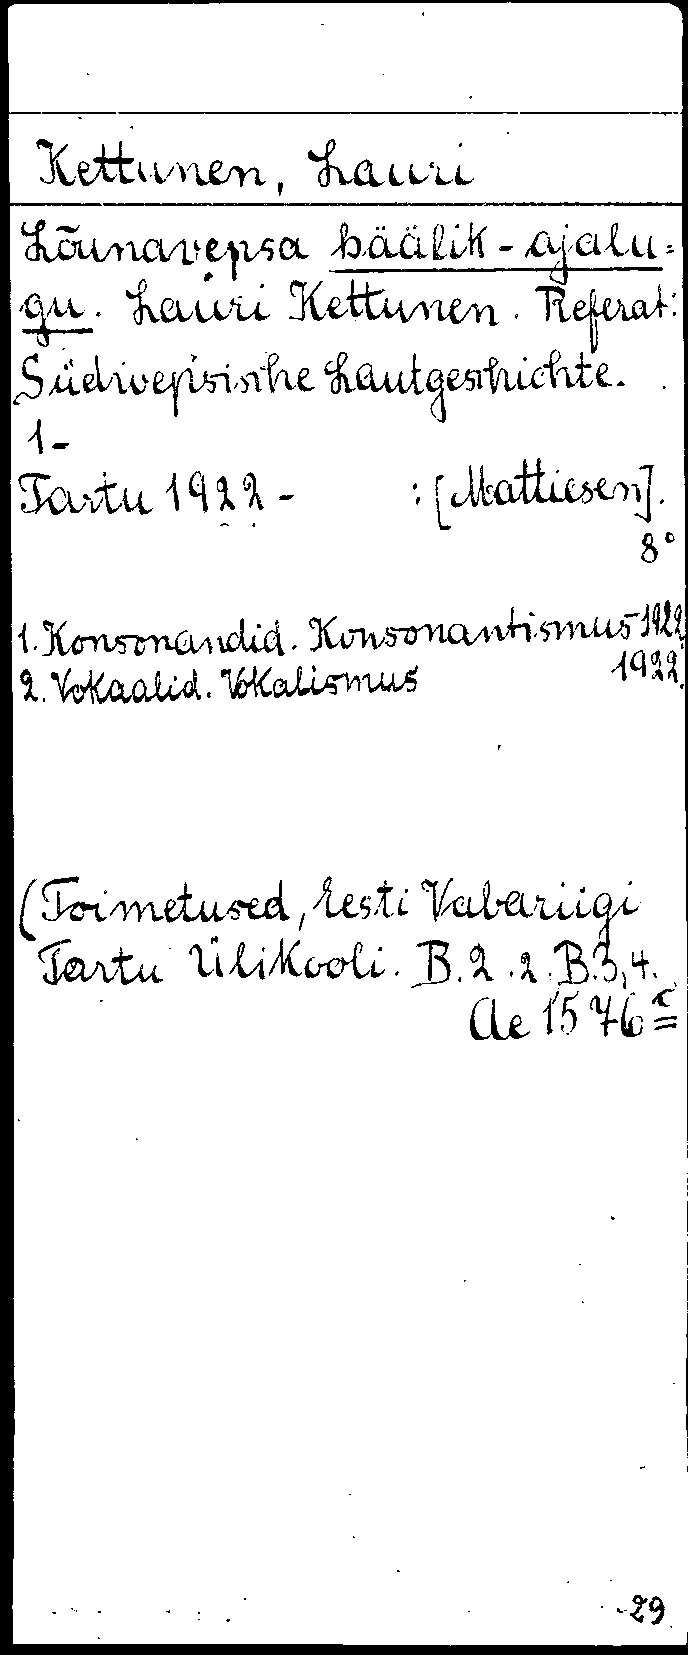 Kettunen, Lauri
Lõunavepsa häälik-ajalu=
gu. Lauri Kettunen. Referat:
Südwepsische Lautgeschichte.
1-
Tartu 1922- : [Mattiesen].
8°
1. Konsonandid. Konsonantismus 1922.
2. Vokaalid. Vokalismus 1922.
(Toimetused, Eesti Vabariigi
Tartu Ülikooli. B.2.2. B.3,4.
Ae 1576
29